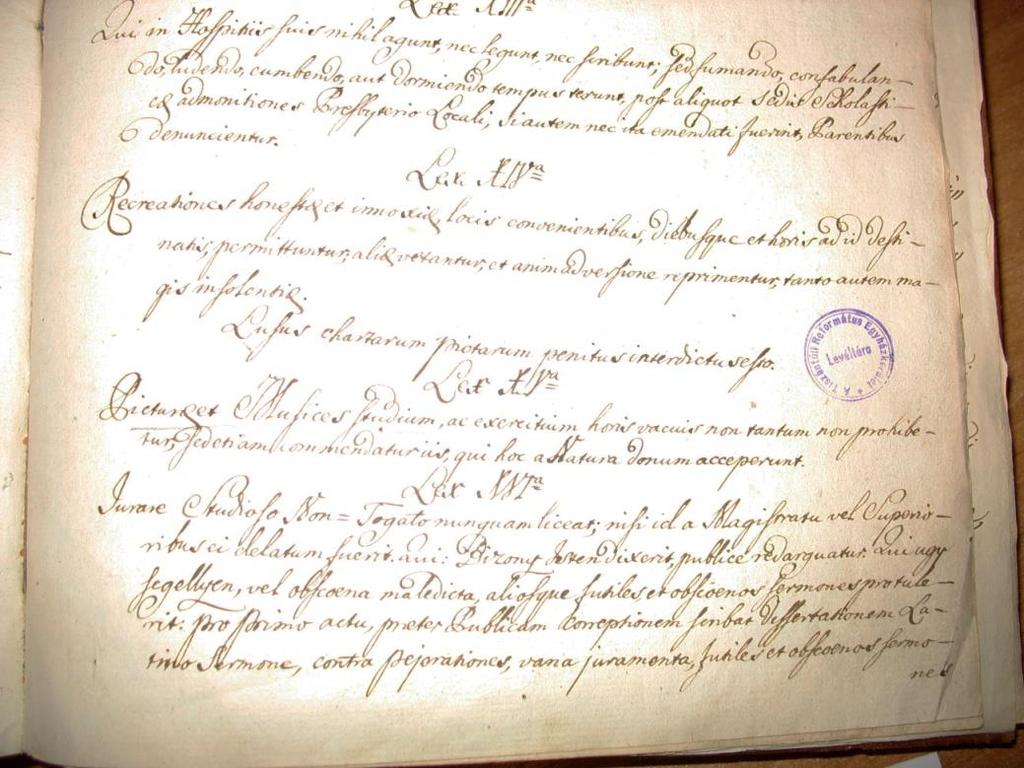 Lex XIIIa
Qui in Hospitiis suis nihil agunt, nec legunt, nec scribunt; sed fumando, confabulan-
do, ludendo, cumbendo, aut dormiendo tempus terunt, post aliquot Sedis Scholasti-
cæ admonitiones Presbyterio Locali, si autem nec ita emendati fuerint, Parentibus
denuncientur.
Lex XIVa
Recreationes honestæ et innoxiæ, locis convenientibus, diebusque et horis ad id desti-
natis, permittuntur, aliæ vetantur, et animadversione reprimentur, tanto autem ma-
gis insolentiæ.
Lusus chartarum pictarum penitus interdictus esto.
Lex XVa
Picturæ et Musices studium, ac exercitium horis vacuis non tantum non prohibe-
tur, sed etiam commendatur iis, qui hoc a Natura donum acceperunt.
Lex XVIa
Jurare Studioso Non= Togato nunquam liceat; nisi id a Magistratu vel Superio-
ribus ei delatum fuerit. Qui: Bizony Isten dixerit, publice redarguatur. Qui ugy
segellyen, vel obscoena maledicta, aliosque futiles et obscoenos sermones protule-
rit: pro primo actu, præter Publicam Correptionem scribat dissertationem La-
tino Sermone, contra pejorationes, vana juramenta, futiles et obscoenos sermo-
nes
A Tiszántúli Református Egyházkerület
Levéltára